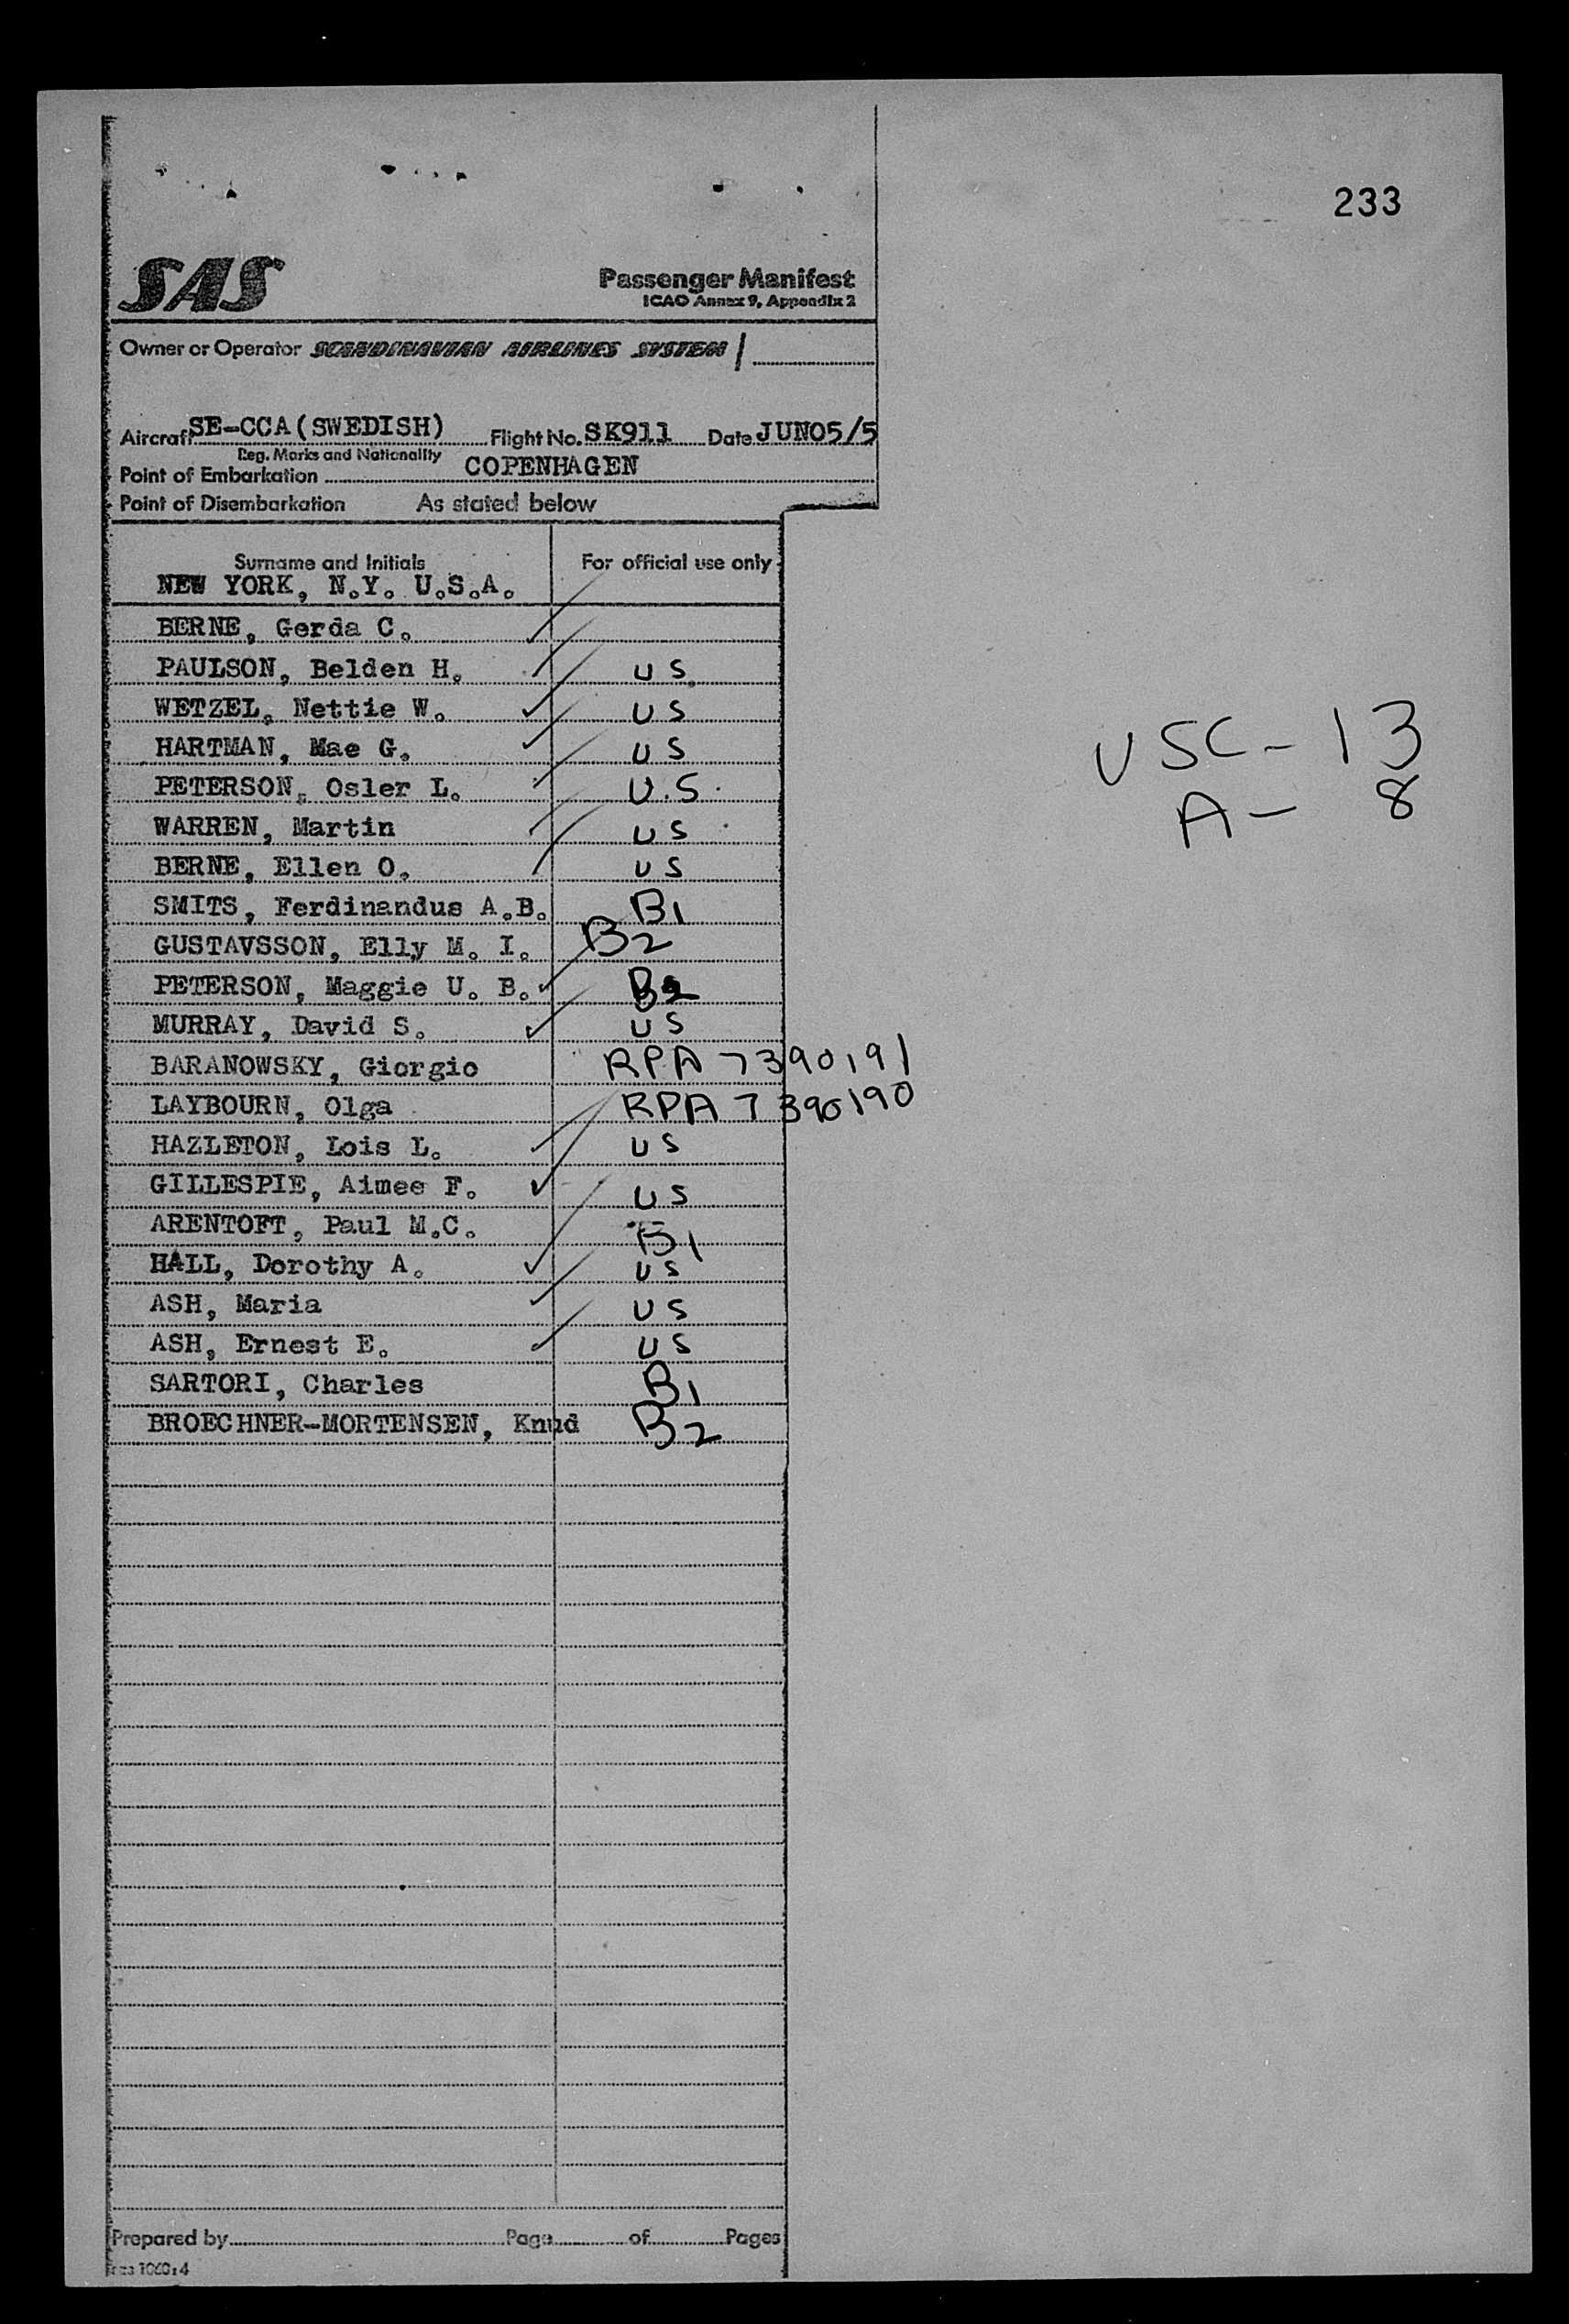 233
SAS
Passenger Manifest
ICAO Annex 9, Appendix 2
Owner or Operator SCANDINAVIAN AIRLINES SYSTEM /
Aircraft SE-CCA(SWEDISH) Flight No. SK911 Date JUN05/5
Reg. Marks and Nationality
Point of Embarkation COPENHAGEN
Point of Disembarkation As stated below
Surname and Initials For official use only
NEW YORK, N.Y. U.S.A.
BERNE, Gerda C.
PAULSON, Belden H. US
WETZEL, Nettie W. US
HARTMAN, Mae G. US
PETERSON, Osler L. U.S.
WARREN, Martin US
BERNE, Ellen O. US
SMITS, Ferdinandus A.B. B1
GUSTAVSSON, Elly M. I. B2
PETERSON, Maggie U. B. B2
MURRAY, David S. US
BARANOWSKY, Giorgio RPA 7390191
LAYBOURN, Olga RPA 7390190
HAZLETON, Lois L. US
GILLESPIE, Aimee F. US
ARENTOFT, Paul M.C. B1
HALL, Dorothy A. US
ASH, Maria US
ASH, Ernest E. US
SARTORI, Charles B1
BROECHNER-MORTENSEN, Knud B2
USC - 13
A - 8
Prepared by Page of Pages
1060:4